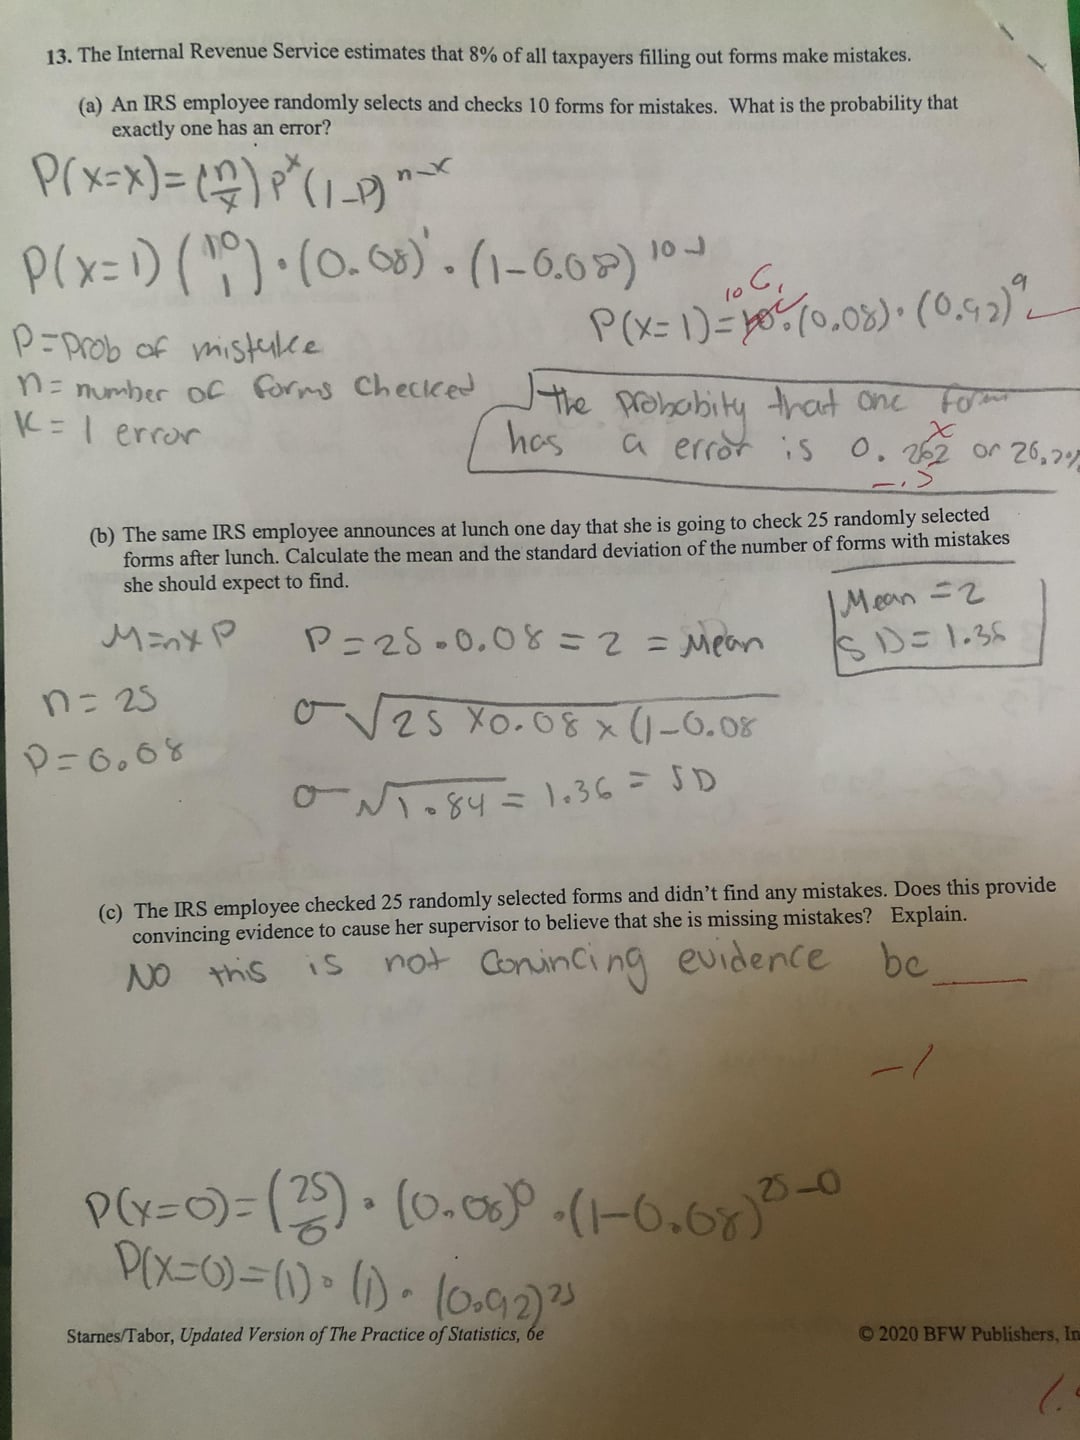 13. The Internal Revenue Service estimates that 8% of all taxpayers filling out forms make mistakes.
(a) An IRS employee randomly selects and checks 10 forms for mistakes. What is the probability that
exactly one has an error?
P(x=x)=(n/x) p^x (1-p)^n-x
P(x=1) (10 1)·(0.08)^1·(1-0.08)^10-1
10C1
P(x=1)=10·(0.08)·(0.92)^9
P=prob of mistake
n= number of forms checked
K=1 error
the probabity that one form
has a error is 0.262 or 26.2%
x
-.5
(b) The same IRS employee announces at lunch one day that she is going to check 25 randomly selected
forms after lunch. Calculate the mean and the standard deviation of the number of forms with mistakes
she should expect to find.
Mean = 2
SD = 1.36
M=n×P
P=25·0.08=2 = Mean
n=25
P=0.08
σ√25×0.08×(1-0.08
σ√1.84 = 1.36 = SD
(c) The IRS employee checked 25 randomly selected forms and didn't find any mistakes. Does this provide
convincing evidence to cause her supervisor to believe that she is missing mistakes? Explain.
NO this is not convincing evidence bc
-1
P(x=0)=(25/0)·(0.08)^0·(1-0.08)^25-0
P(x=0)=(1)·(1)·(0.92)^25
Starnes/Tabor, Updated Version of The Practice of Statistics, 6e
© 2020 BFW Publishers, In